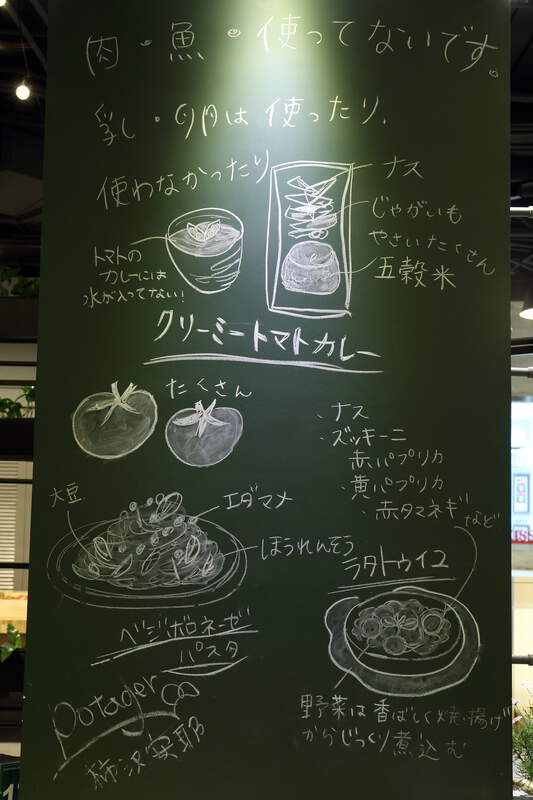 肉・魚・使ってないです。
乳し・卵は使ったり、
使わなかったり
ナス
じゃがいも
やさいたくさん
五穀米
トマトの
カレーには
水が入ってない!
クリーミートマトカレー
たくさん
・ナス
・ズッキーニ
・赤パプリカ
・黄パプリカ
・赤タマネギ
など
大豆
エダマメ
ほうれんそう
ベジボロネーゼ
パスタ
ラタトゥイユ
野菜は香ばしく焼・揚げ
からじっくり煮込む
potager
柿沢安耶